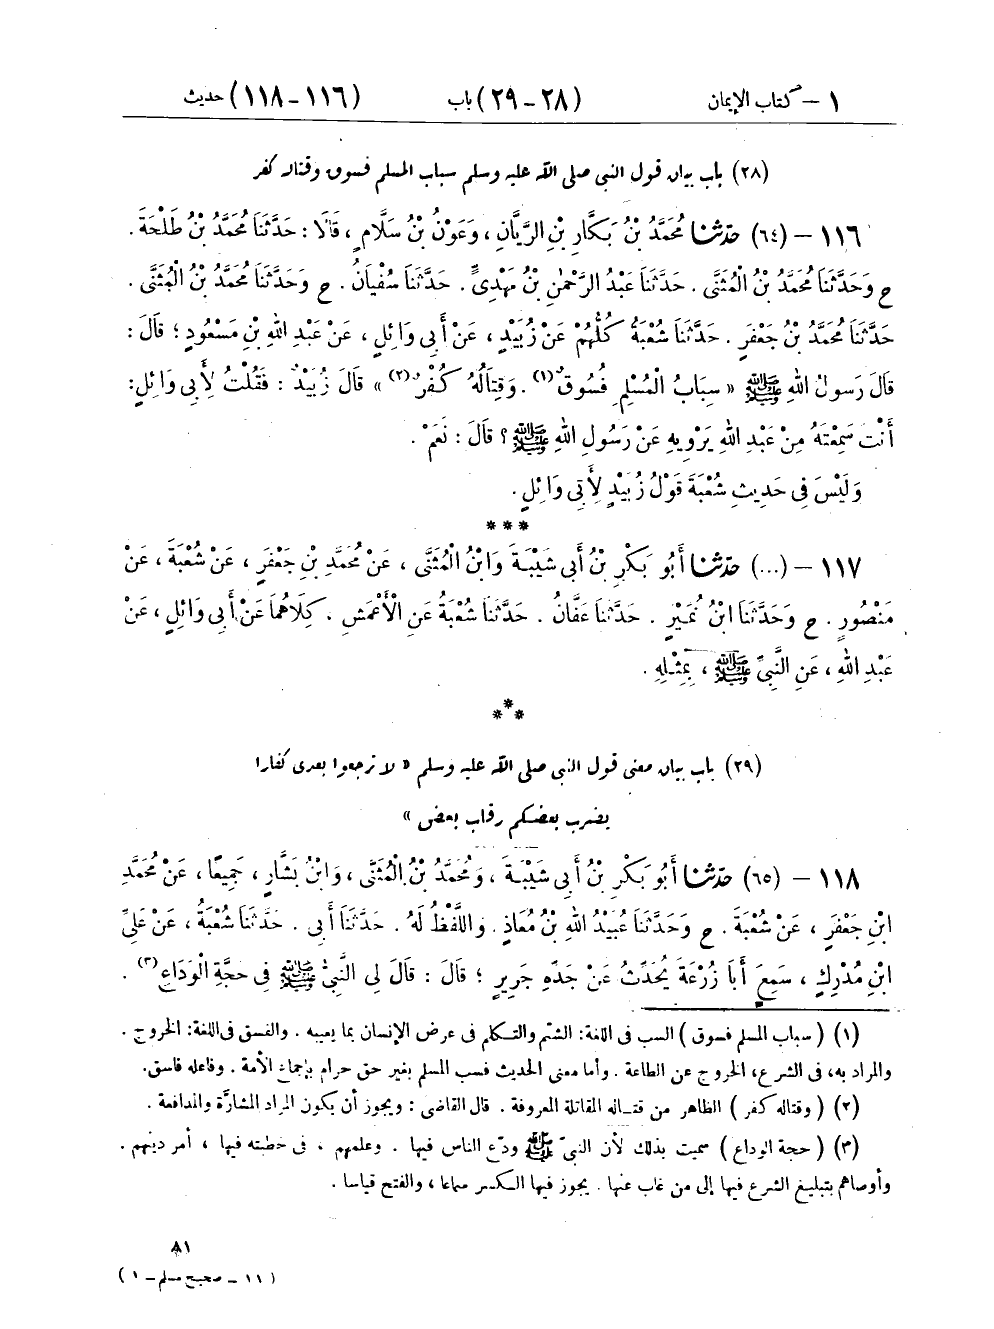 ١ – كتاب الإيمان (٢٨ – ٢٩) باب (١١٦ – ١١٨) حديث
(٢٨) باب بيان قول النبي صلى الله عليه وسلم سباب المسلم فسوق وقتاله كفر
١١٦ – (٦٤) حَدَّثَنَا مُحَمَّدُ بْنُ بَكَّارِ بْنِ الرَّيَّانِ ، وَعَوْنُ بْنُ سَلَّامٍ ، قَالَا : حَدَّثَنَا مُحَمَّدُ بْنُ طَلْحَةَ .
ح وَحَدَّثَنَا مُحَمَّدُ بْنُ الْمُثَنَّى . حَدَّثَنَا عَبْدُ الرَّحْمٰنِ بْنُ مَهْدِيٍّ . حَدَّثَنَا سُفْيَانُ . ح وَحَدَّثَنَا مُحَمَّدُ بْنُ الْمُثَنَّى .
حَدَّثَنَا مُحَمَّدُ بْنُ جَعْفَرٍ . حَدَّثَنَا شُعْبَةُ كُلُّهُمْ عَنْ زُبَيْدٍ ، عَنْ أَبِي وَائِلٍ ، عَنْ عَبْدِ اللهِ بْنِ مَسْعُودٍ ؛ قَالَ :
قَالَ رَسُولُ اللهِ ﷺ « سِبَابُ الْمُسْلِمِ فُسُوقٌ (١) . وَقِتَالُهُ كُفْرٌ (٢) » قَالَ زُبَيْدٌ : فَقُلْتُ لِأَبِي وَائِلٍ :
أَنْتَ سَمِعْتَهُ مِنْ عَبْدِ اللهِ يَرْوِيهِ عَنْ رَسُولِ اللهِ ﷺ ؟ قَالَ : نَعَمْ .
وَلَيْسَ فِي حَدِيثِ شُعْبَةَ قَوْلُ زُبَيْدٍ لِأَبِي وَائِلٍ .
* * *
١١٧ – (...) حَدَّثَنَا أَبُو بَكْرِ بْنُ أَبِي شَيْبَةَ وَابْنُ الْمُثَنَّى ، عَنْ مُحَمَّدِ بْنِ جَعْفَرٍ ، عَنْ شُعْبَةَ ، عَنْ
مَنْصُورٍ . ح وَحَدَّثَنَا ابْنُ نُمَيْرٍ . حَدَّثَنَا عَفَّانُ . حَدَّثَنَا شُعْبَةُ عَنِ الْأَعْمَشِ . كِلَاهُمَا عَنْ أَبِي وَائِلٍ ، عَنْ
عَبْدِ اللهِ ، عَنِ النَّبِيِّ ﷺ ، بِمِثْلِهِ .
* * *
(٢٩) باب بيان معنى قول النبي صلى الله عليه وسلم « لا ترجعوا بعدى كفارا
يضرب بعضكم رقاب بعض »
١١٨ – (٦٥) حَدَّثَنَا أَبُو بَكْرِ بْنُ أَبِي شَيْبَةَ ، وَمُحَمَّدُ بْنُ الْمُثَنَّى ، وَابْنُ بَشَّارٍ ، جَمِيعًا ، عَنْ مُحَمَّدِ
ابْنِ جَعْفَرٍ ، عَنْ شُعْبَةَ . ح وَحَدَّثَنَا عُبَيْدُ اللهِ بْنُ مُعَاذٍ . وَاللَّفْظُ لَهُ . حَدَّثَنَا أَبِي . حَدَّثَنَا شُعْبَةُ ، عَنْ عَلِيِّ
ابْنِ مُدْرِكٍ ، سَمِعَ أَبَا زُرْعَةَ يُحَدِّثُ عَنْ جَدِّهِ جَرِيرٍ ؛ قَالَ : قَالَ لِي النَّبِيُّ ﷺ فِي حَجَّةِ الْوَدَاعِ (٣) .
(١) ( سباب المسلم فسوق ) السب فى اللغة: الشتم والتكلم فى عرض الإنسان بما يعيبه . والفسق فى اللغة: الخروج .
والمراد به، فى الشرع، الخروج عن الطاعة . وأما معنى الحديث فسب المسلم بغير حق حرام بإجماع الأمة . وفاعله فاسق.
(٢) ( وقتاله كفر ) الظاهر من قتاله المقاتلة المعروفة . قال القاضى : ويجوز أن يكون المراد المشارّة والمدافعة .
(٣) ( حجة الوداع ) سميت بذلك لأن النبىّ ﷺ ودّع الناس فيها . وعلمهم ، فى خطبته فيها ، أمر دينهم .
وأوصاهم بتبليغ الشرع فيها إلى من غاب عنها . يجوز فيها الكسر سماعا ، والفتح قياسا .
٨١
( ١١ – صحيح مسلم – ١ )